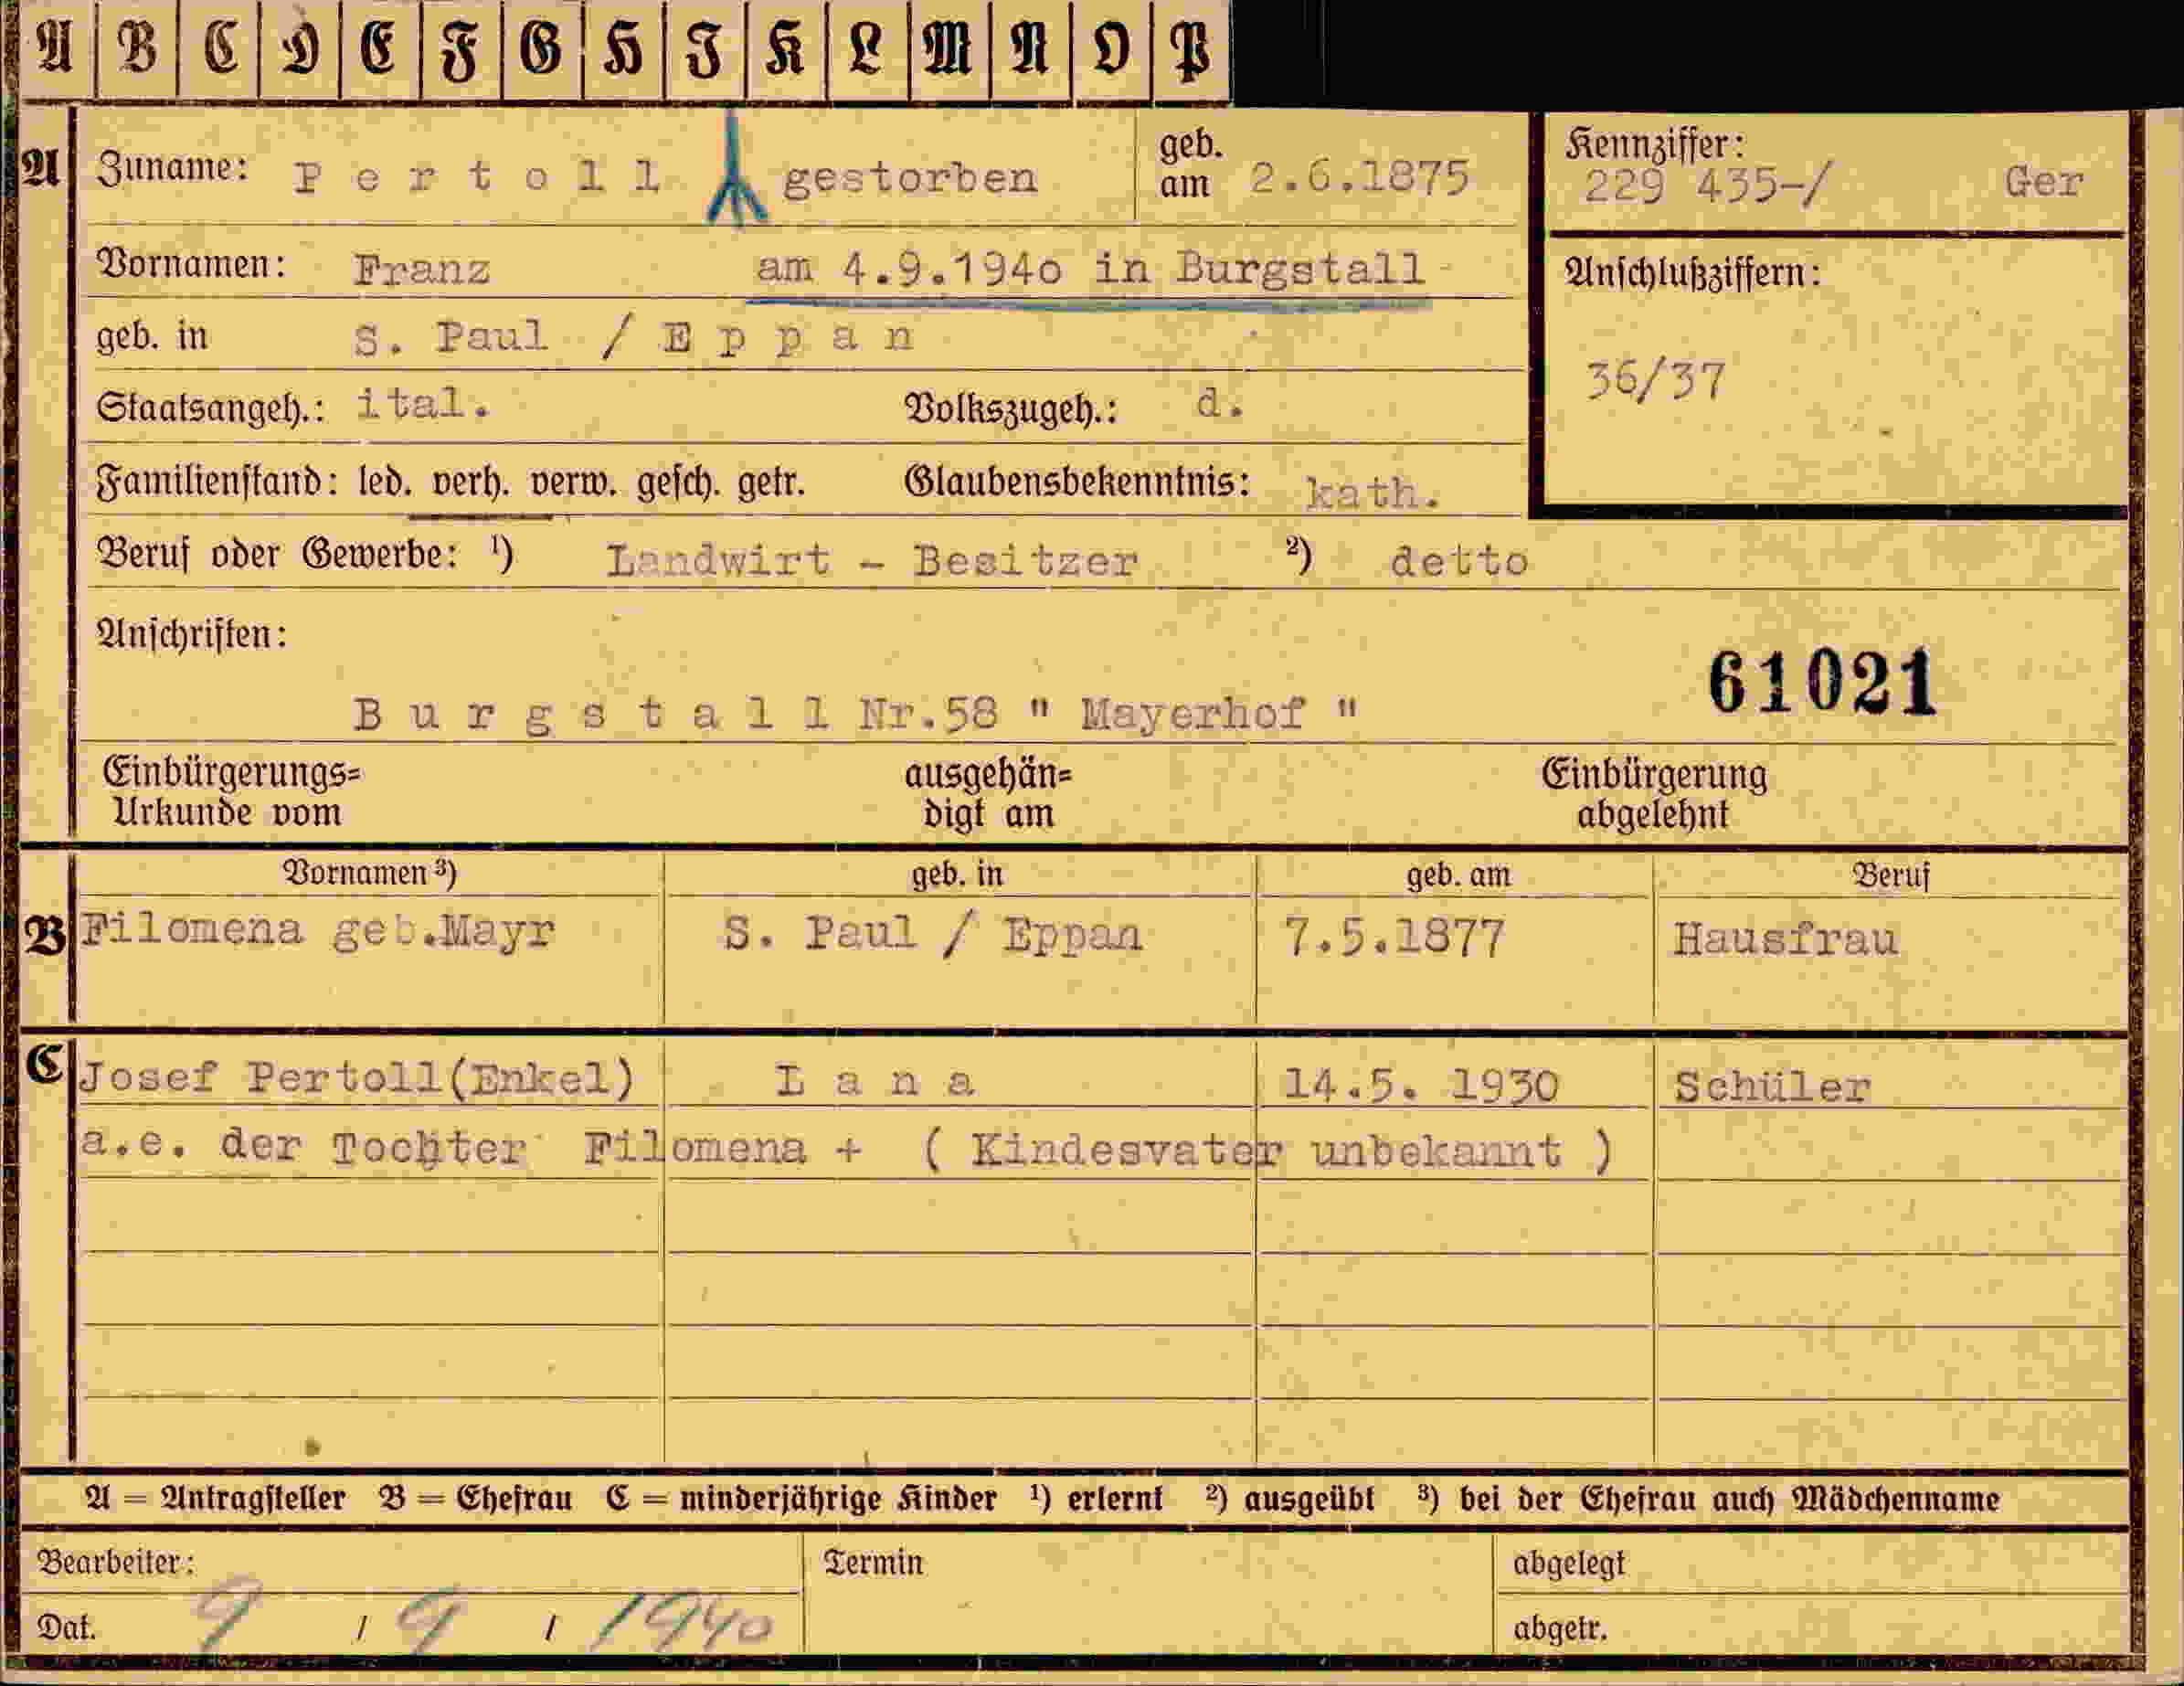 A B C D E F G H I K L M N O P
A Zuname: Pertoll gestorben geb. am 2.6.1875 Kennziffer: 229 435-/ Ger
Vornamen: Franz am 4.9.1940 in Burgstall
Anschlußziffern:
geb. in S. Paul / Eppan
36/37
Staatsangeh.: ital. Volkszugeh.: d.
Familienstand: led. verh. verw. gesch. getr. Glaubensbekenntnis: kath.
Beruf oder Gewerbe: ¹) Landwirt - Besitzer ²) detto
Anschriften:
61021
Burgstall Nr.58 " Mayerhof "
Einbürgerungs= ausgehän= Einbürgerung
Urkunde vom digt am abgelehnt
Vornamen ³) geb. in geb. am Beruf
B Filomena geb.Mayr S. Paul / Eppan 7.5.1877 Hausfrau
C Josef Pertoll(Enkel) Lana 14.5. 1930 Schüler
a.e. der Tochter Filomena + ( Kindesvater unbekannt )
A = Antragsteller B = Ehefrau C = minderjährige Kinder ¹) erlernt ²) ausgeübt ³) bei der Ehefrau auch Mädchenname
Bearbeiter: Termin abgelegt
Dat. 9 / 9 / 1940 abgetr.